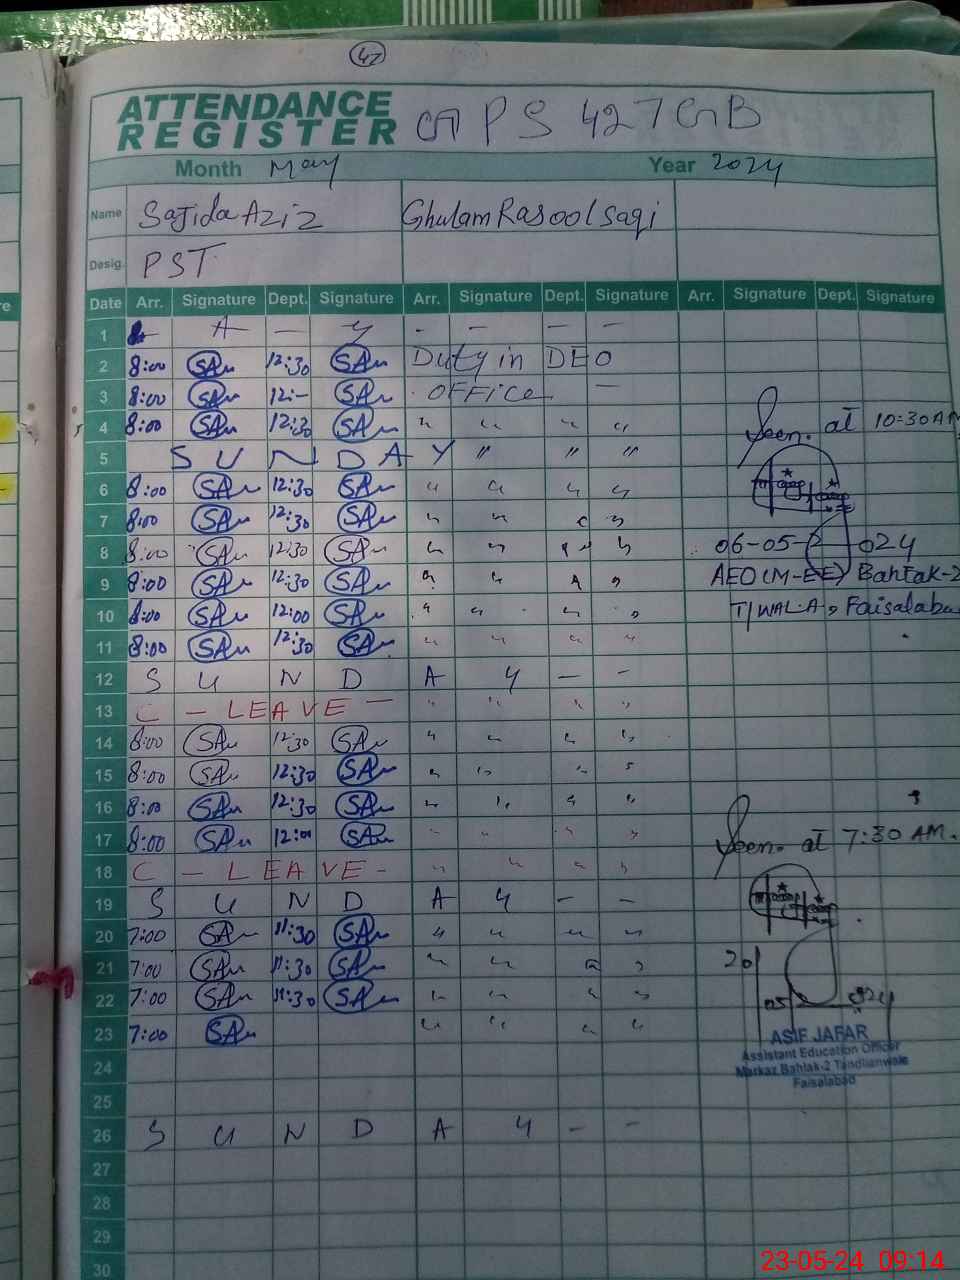 42
ATTENDANCE
REGISTER GPS 427 GB
Month May Year 2024
Name Sajida Aziz Ghulam Rasool saqi
Desig. PST
Date Arr. Signature Dept. Signature Arr. Signature Dept. Signature Arr. Signature Dept. Signature
1 - - - -
2 8:00 SA 12:30 SA Duty in DEO
3 8:00 SA 12:- SA OFFice -
4 8:00 SA 12:30 SA " " " "
5 S U N D A Y " " "
6 8:00 SA 12:30 SA " " " "
7 8:00 SA 12:30 SA " " " "
8 8:00 SA 12:30 SA " " " "
9 8:00 SA 12:30 SA " " " "
10 8:00 SA 12:00 SA " " " "
11 8:00 SA 12:30 SA " " " "
12 S U N D A Y - -
13 C - LEAVE - " " " "
14 8:00 SA 12:30 SA " " " "
15 8:00 SA 12:30 SA " " " "
16 8:00 SA 12:30 SA " " " "
17 8:00 SA 12:00 SA " " " "
18 C - LEAVE - " " " "
19 S U N D A Y - -
20 7:00 SA 11:30 SA " " " "
21 7:00 SA 11:30 SA " " " "
22 7:00 SA 11:30 SA " " " "
23 7:00 SA " " " "
24
25
26 S U N D A Y - -
27
28
29
30
Seen. at 10:30 AM
06-05-2024
AEO (M-EE) Bahlak-2
T/WALA, Faisalaba
Seen. at 7:30 AM.
20/05/2024
ASIF JAFAR
Assistant Education Officer
Markaz Bahlak-2 Tandlianwala
Faisalabad
23-05-24 09:14